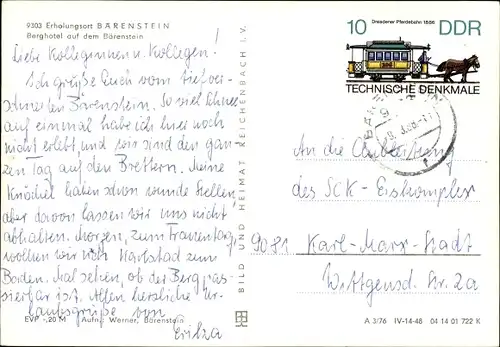 9303 Erholungsort BÄRENSTEIN
Berghotel auf dem Bärenstein
Liebe Kolleginnen u. Kollegen!
Ich grüße Euch vom tiefver-
schneiten Bärenstein. So viel Schnee
auf einmal habe ich hier noch
nicht erlebt und wir sind den gan-
zen Tag auf den Brettern. Meine
Knöchel haben schon wunde Stellen,
aber davon lassen wir uns nicht
abhalten. Morgen, zum Frauentag,
wollen wir nach Karlsbad zum
Baden. Mal sehen, ob der Berg pas-
sierbar ist. Allen herzliche Ur-
laubsgrüße von
EVP -,20 M Aufn.: Werner, Bärenstein
BILD UND HEIMAT REICHENBACH I. V.
10 Dresdener Pferdebahn 1886 DDR
TECHNISCHE DENKMALE
An die Clubleitung
des SCK - Eiskomplex
9081 Karl-Marx-Stadt
Wittgensd. Str. 2a
A 3/76 IV-14-48 04 14 01 722 K